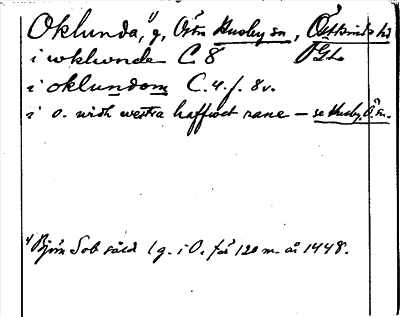 Oklunda,¹⁾ g, Östra Husby sn, Östkinds hd
i wklunde C. 8 Ögl.
i oklundom C. 4. f. 8 v.
i o. widh westra haffwet rane — se Husby, Ö. sn.
¹⁾ Björn Sob såld 1 g. i O. för 120 m. år 1448.